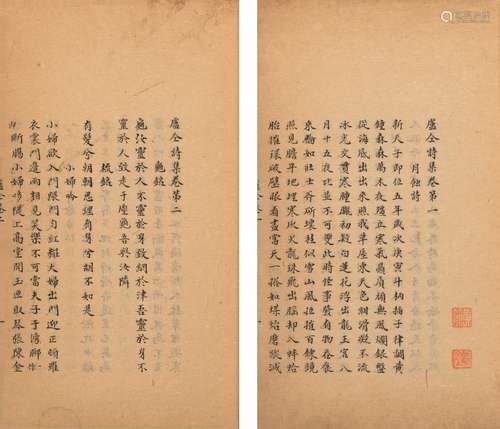 盧仝詩集卷第一
月蝕詩
新天子即位五年歲次庚寅斗柄插子律調黃
鍾森森萬木夜殭立寒氣贔屓頑無風爛銀盤
從海底出出來照我草屋東天色紺滑凝不流
冰光交貫寒朣朧初疑白蓮花浮出龍王宮八
月十五夜比並不可雙此時怪事發有物吞食
來輪如壯士斧斫壞桂似雪山風拉摧百鍊鏡
照見膽平地埋寒灰火龍珠飛出腦却入蚌蛤
胎摧環破璧眼看盡當天一搭如煤炲磨蹤滅
盧仝詩集卷第二
龜銘
龜汝靈於人不靈於身致網於津吾靈於身不
靈於人致走于塵龜吾與汝隣
梳銘
有髮兮朝朝思理有身兮胡不如是
小婦吟
小婦欲入門隈門勻紅粧大婦出門迎正頓羅
衣裳門邊兩相見笑樂不可當夫子于傍聊
断腸小婦上高堂開玉匣取琴張陳金